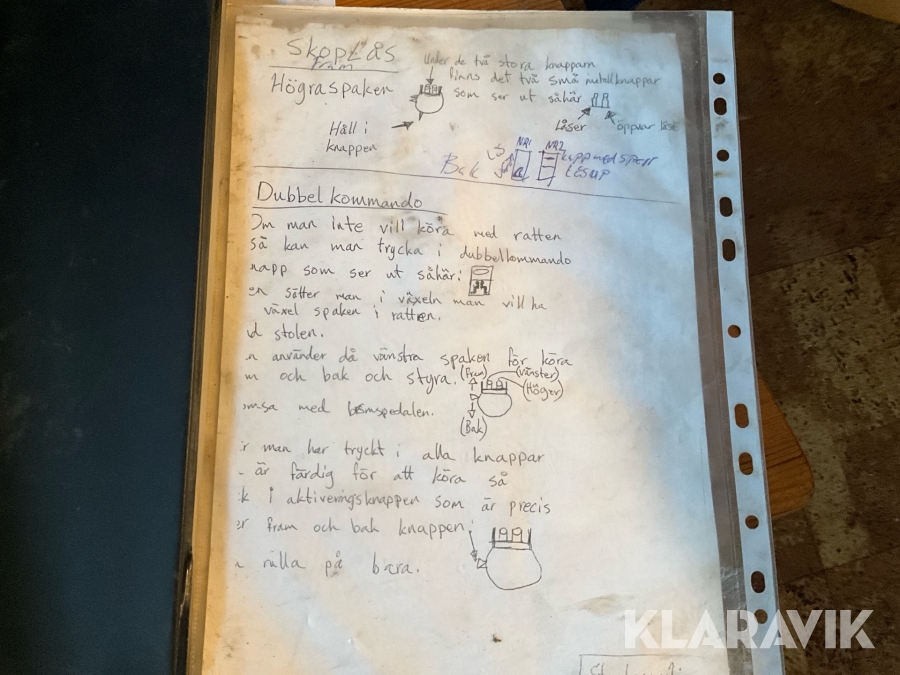 SkopLås
Fram
Högraspaken
Under de två stora knapparn
finns det två små metallknappar
som ser ut såhär
Låser
öppnar låst
Håll i
knappen
Bak
NR1
NR2
Dubbelkommando
Om man inte vill köra med ratten
så kan man trycka i dubbelkommando
napp som ser ut såhär:
en sätter man i växeln man vill ha
växel spaken i ratten.
d stolen.
n använder då vänstra spaken för köra
och bak och styra.
(Fram)
(vänster)
(Höger)
(Bak)
omsa med bomspedalen.
r man har tryckt i alla knappar
är färdig för att köra så
k i aktiveringsknappen som är precis
er fram och bak knappen:
rulla på bara.
KLARAVIK